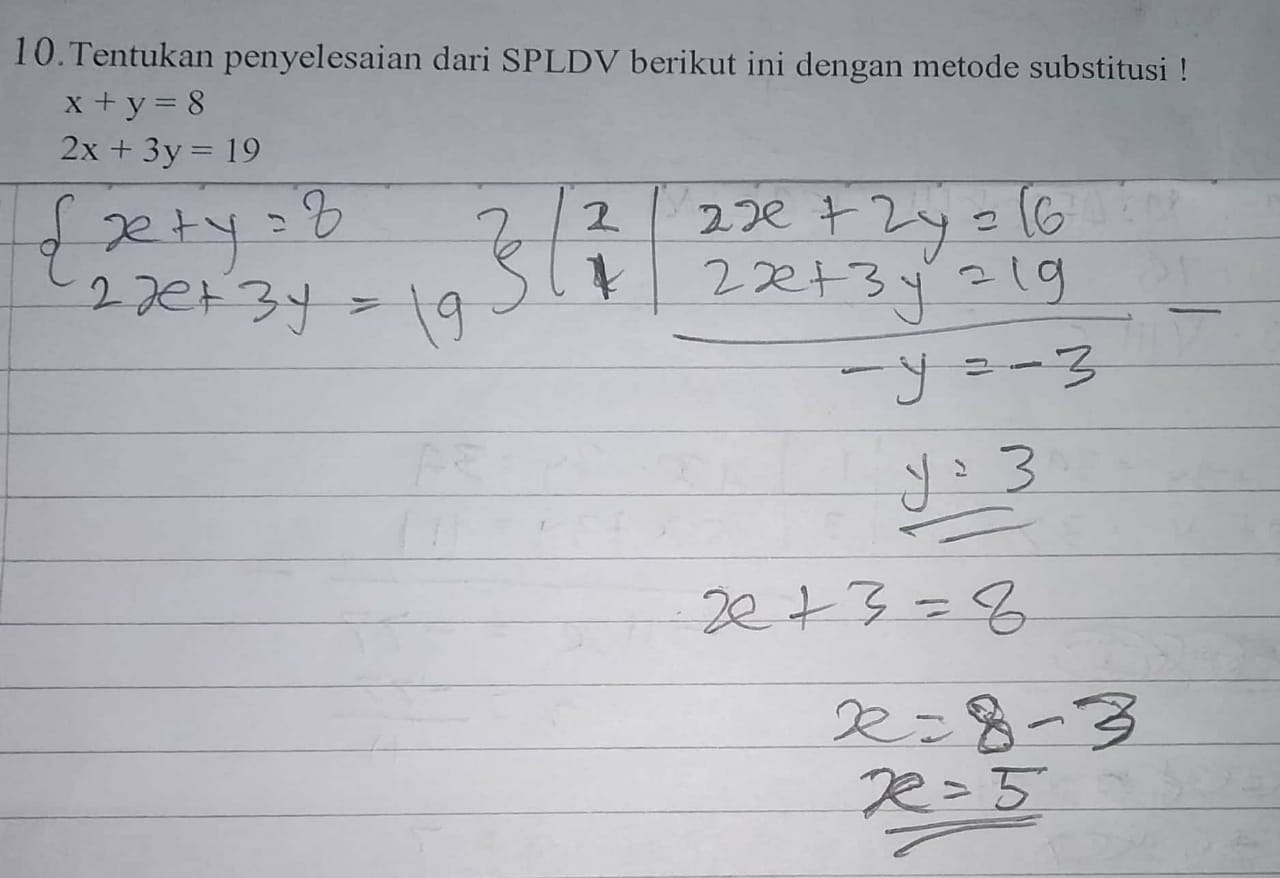 10. Tentukan penyelesaian dari SPLDV berikut ini dengan metode substitusi !
x + y = 8
2x + 3y = 19
{ x + y = 8 } | 2 | 2x + 2y = 16
2x + 3y = 19 | 1 | 2x + 3y = 19 —
-y = -3
y = 3
x + 3 = 8
x = 8 - 3
x = 5